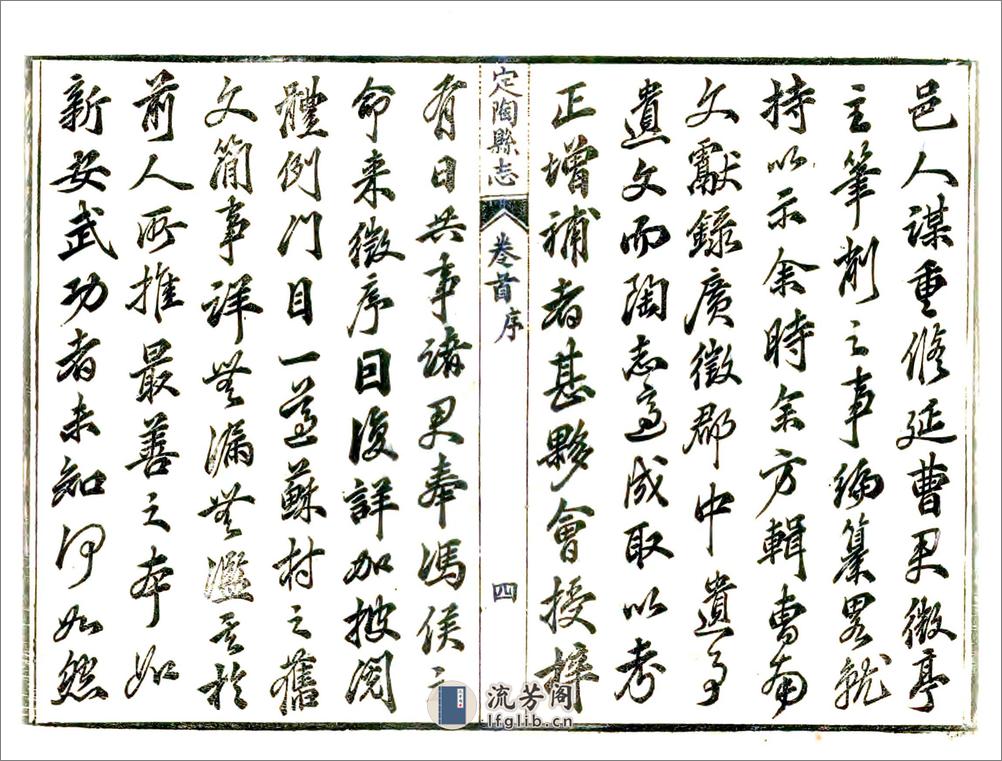 邑人謀重修延曹君徵亭
主筆削之事編纂畧就
持以示余時余方輯曹南
文獻錄廣徵郡中遺事
遺文而陶志適成取以考
正增補者甚夥會授梓
定陶縣志 卷首序 四
有日共事諸君奉馮侯之
命来徵序因復詳加披閱
體例門目一遵蘇村之舊
文簡事詳無漏無濫其於
前人所推最善之本如
新安武功者未知何如然
流芳阁
lfglib.cn